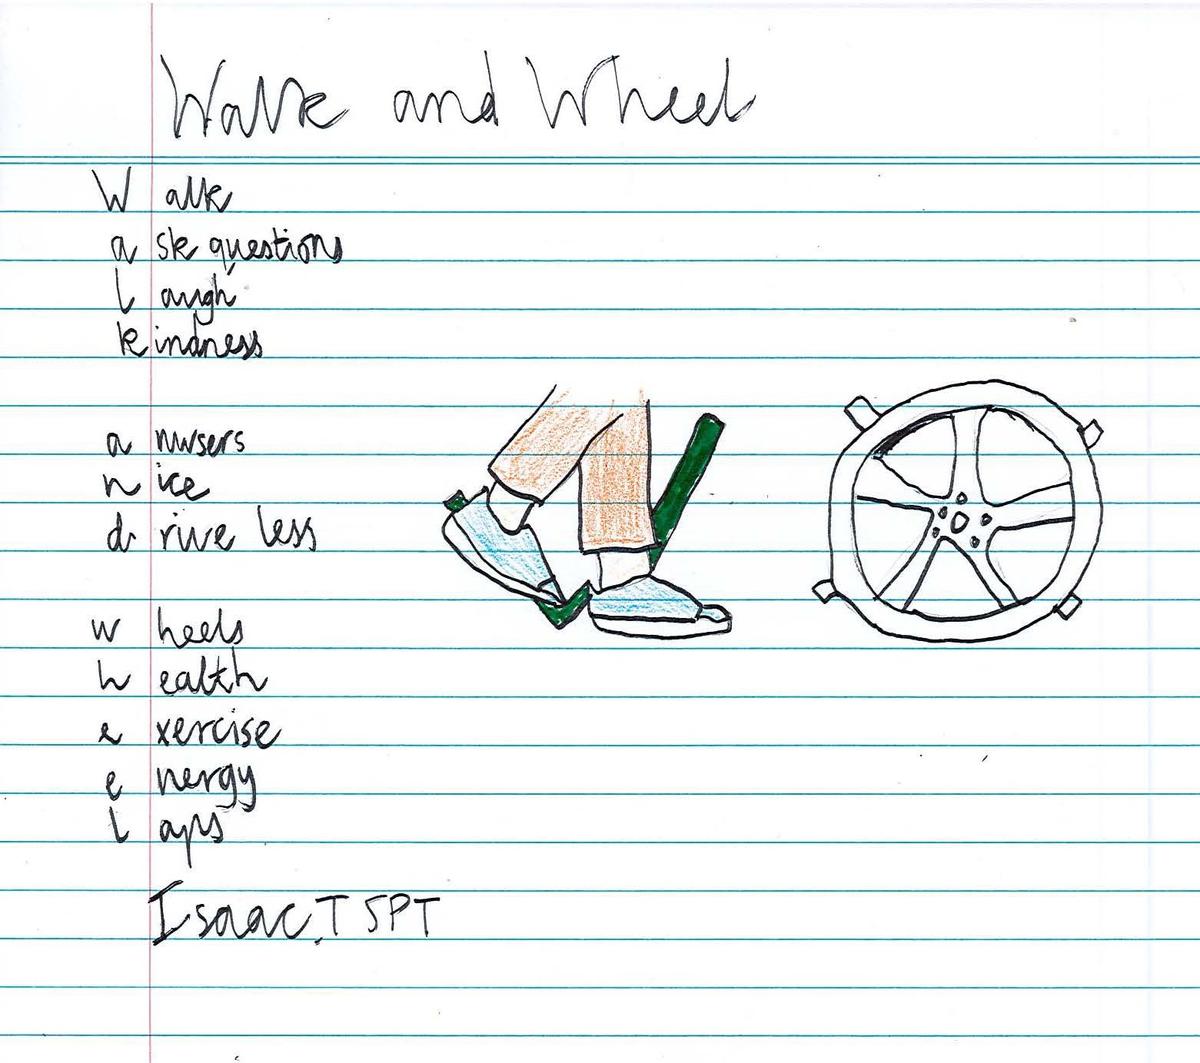 Walk and Wheel
Walk
ask questions
laugh
kindness
anwsers
nice
drive less
wheels
health
exercise
energy
laps
Isaac.T 5PT